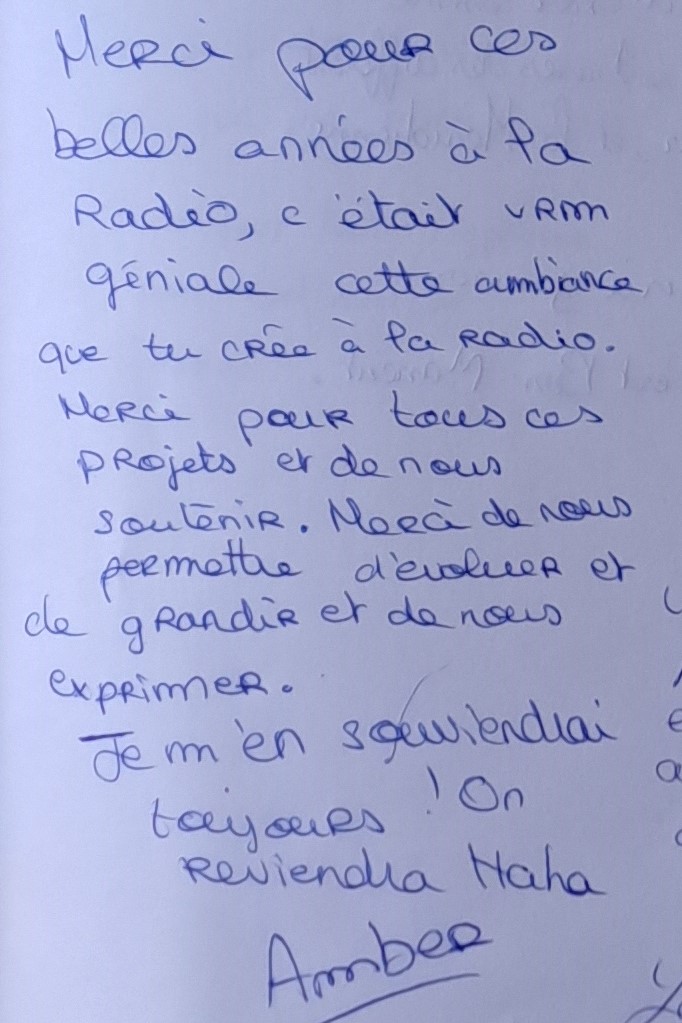 Merci pour ces
belles années à la
Radio, c'était vrm
géniale cette ambiance
que tu crée à la radio.
Merci pour tous ces
projets et de nous
soutenir. Merci de nous
permettre d'évoluer et
de grandir et de nous
exprimer.
Je m'en souviendrai
toujours ! On
reviendra Haha
Amber